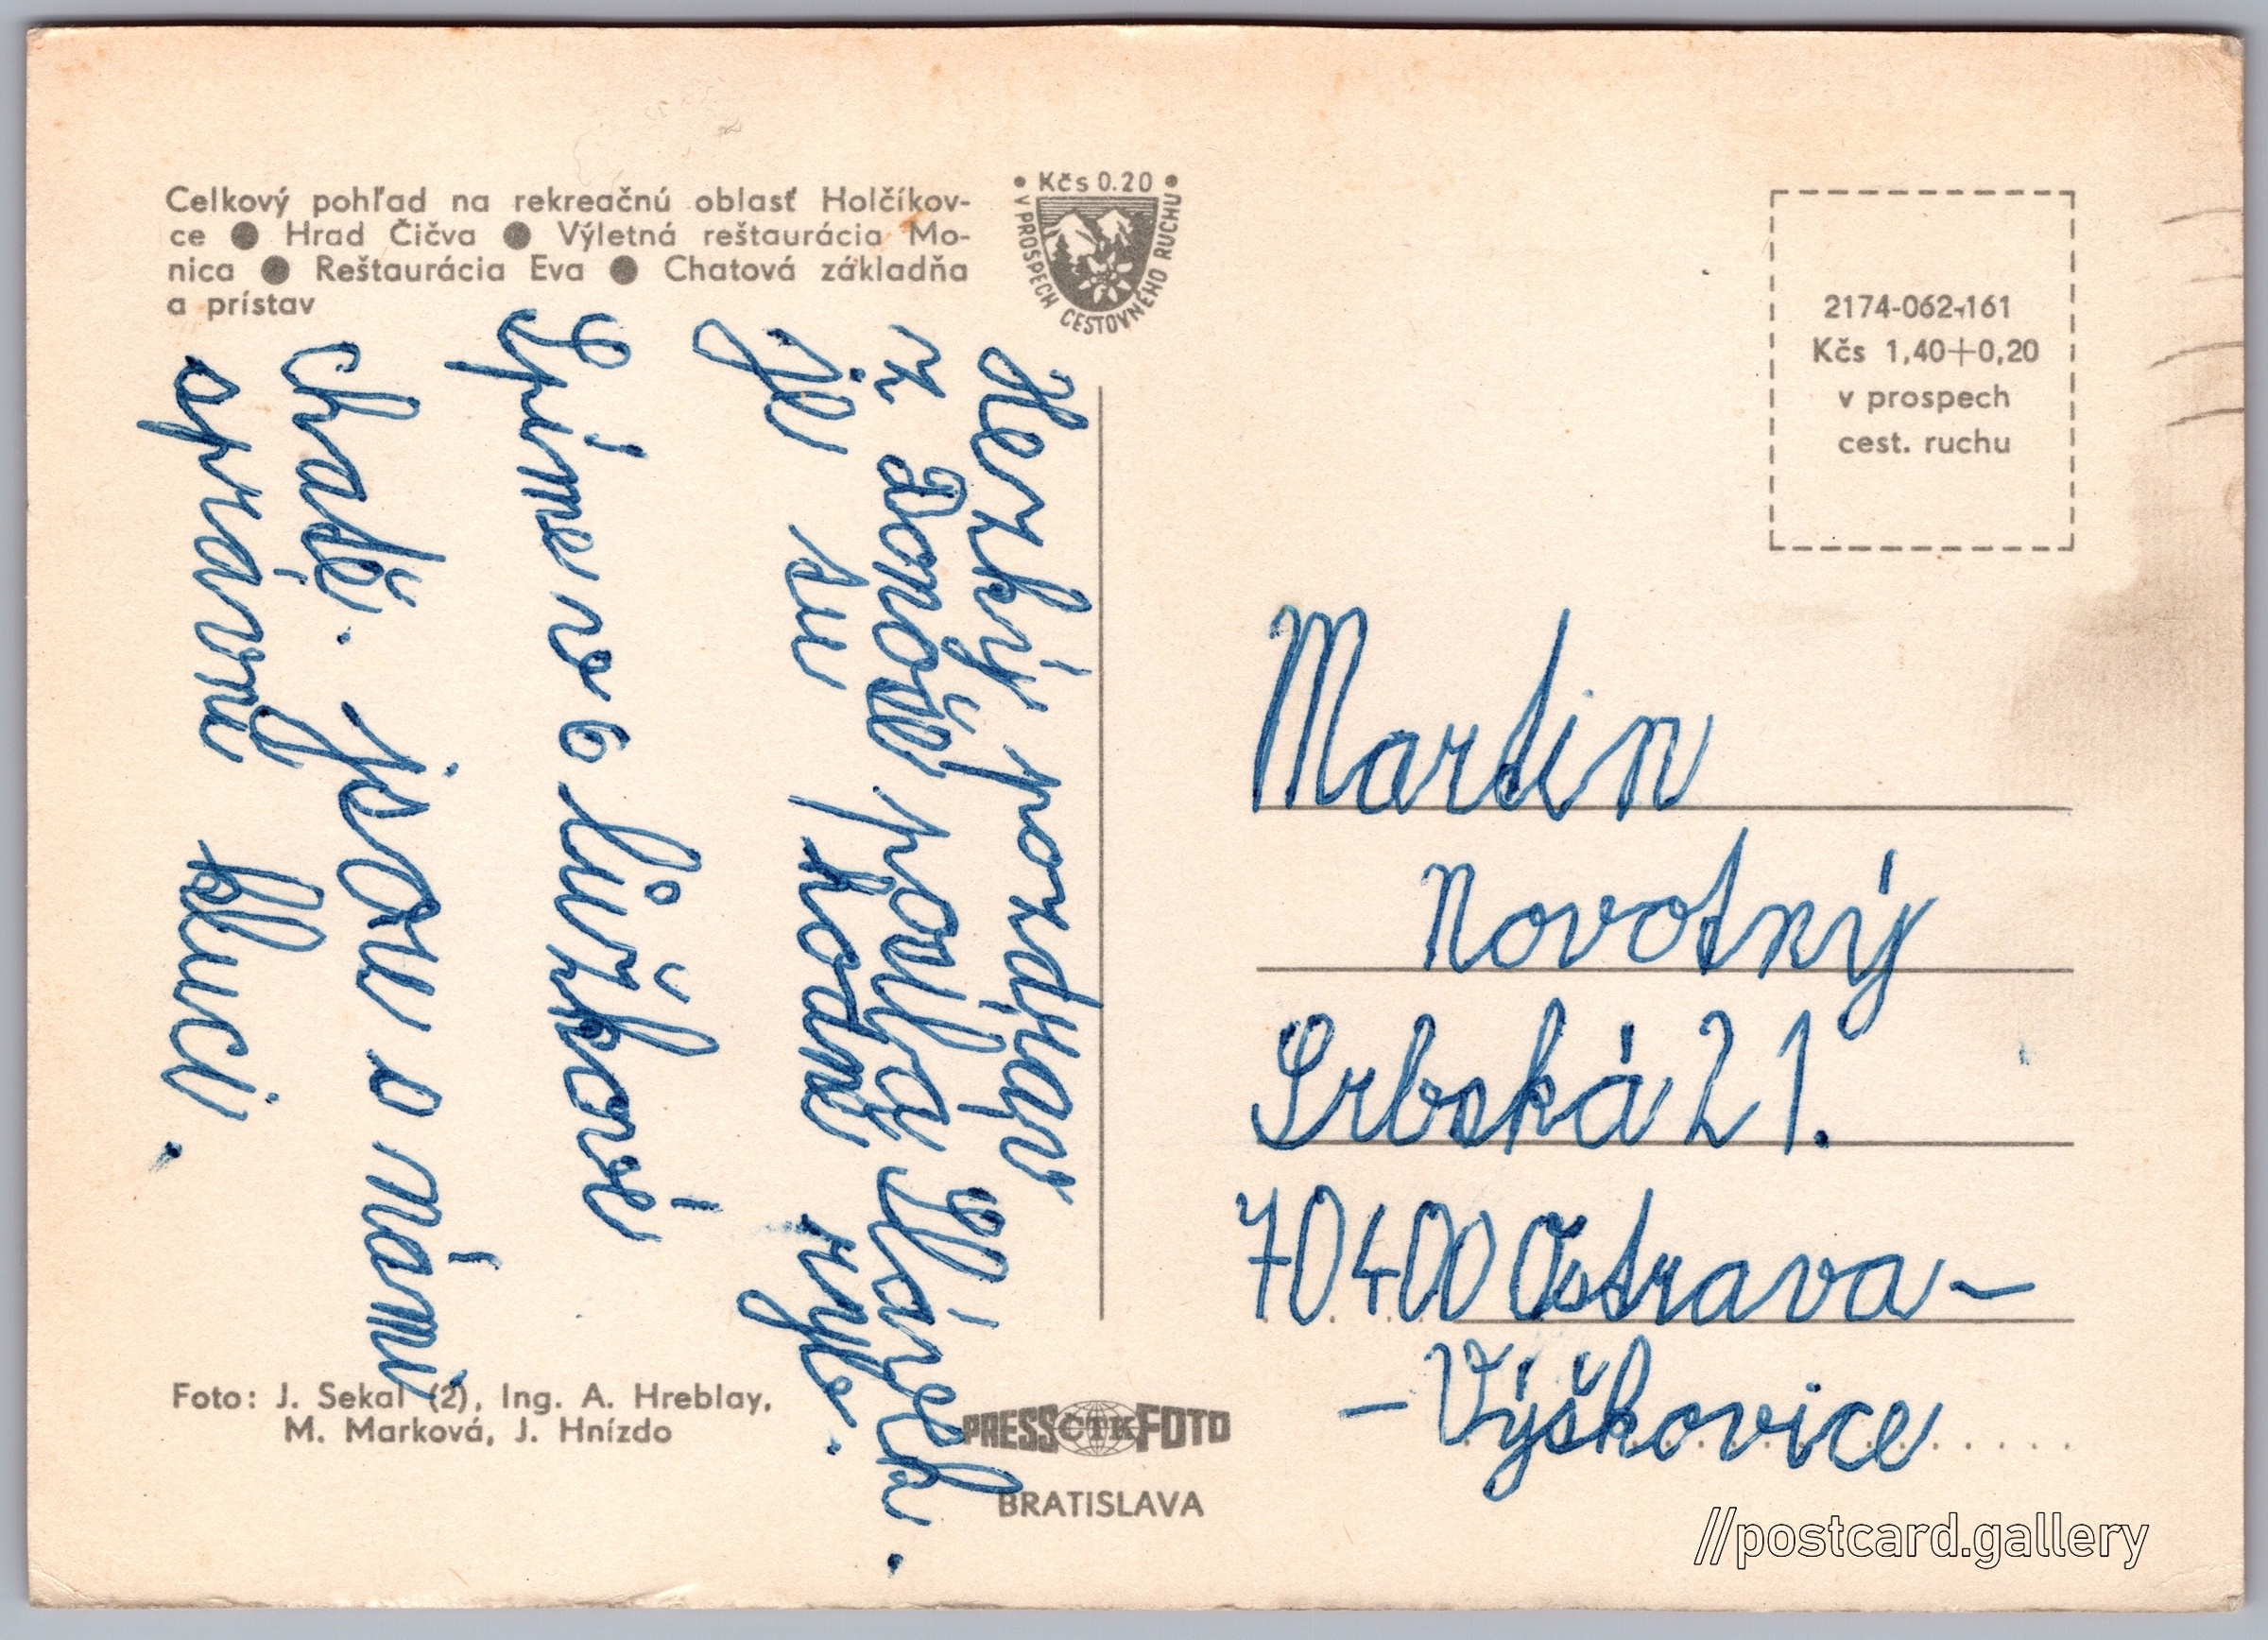 Celkový pohľad na rekreačnú oblasť Holčíkov-
ce ● Hrad Čičva ● Výletná reštaurácia Mo-
nica ● Reštaurácia Eva ● Chatová základňa
a prístav
• Kčs 0.20 •
V PROSPECH CESTOVNÉHO RUCHU
2174-062-161
Kčs 1,40+0,20
v prospech
cest. ruchu
Hezký pozdrav
z Domaše posílá Slávek.
Je su hodně ryb.
Spíme v 6 lůžkové
chatě. jsou s námi
správní kluci.
Martin
Novotný
Srbská 21.
70400 Ostrava-
-Výškovice
Foto: J. Sekal (2), Ing. A. Hreblay,
M. Marková, J. Hnízdo
PRESS ČTK FOTO
BRATISLAVA
//postcard.gallery